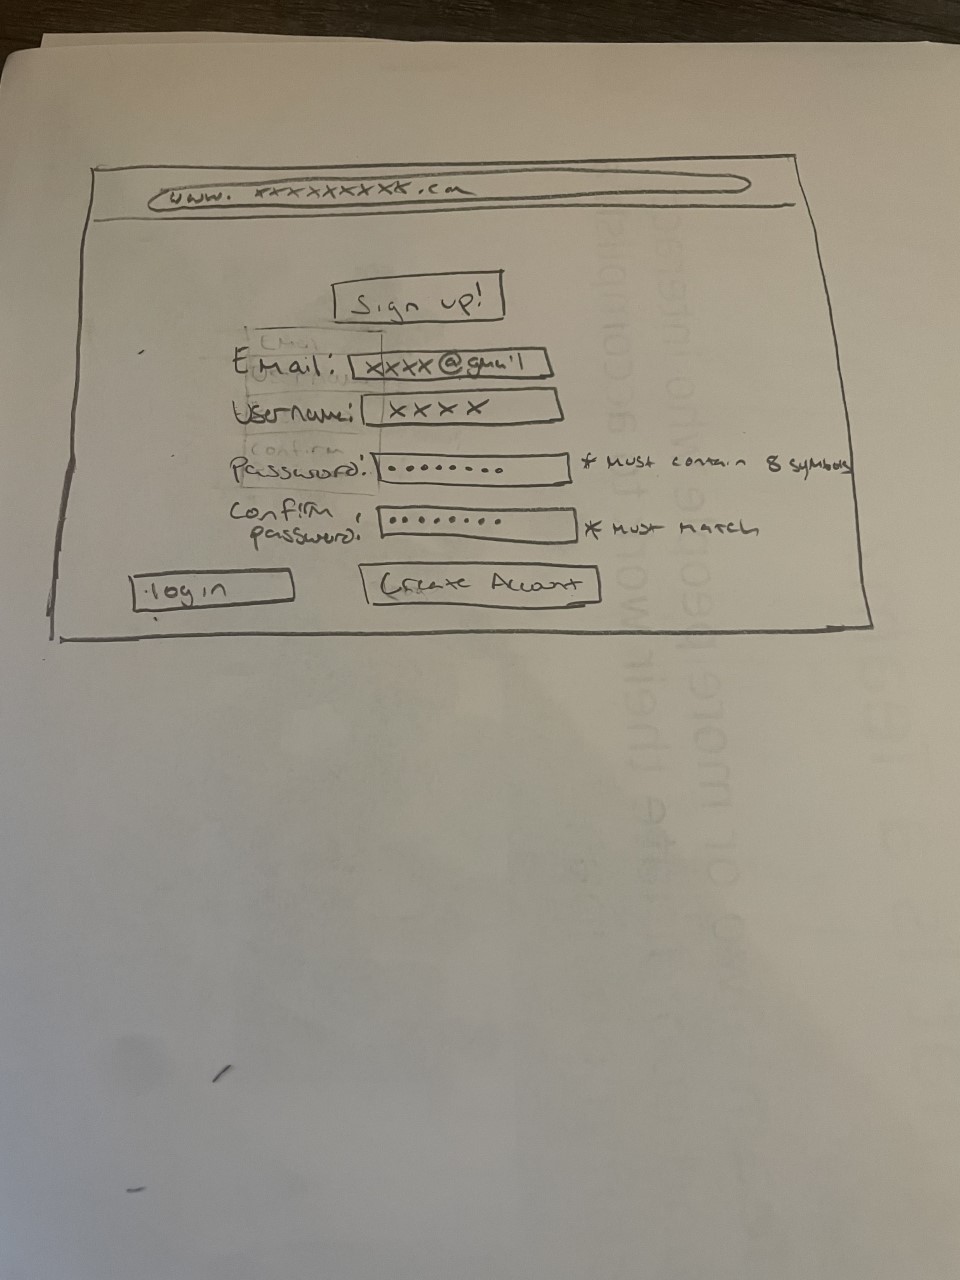 www. xxxxxxxxx.com
Sign up!
Email: xxxx@gmail
Username: xxxx
Password: •••••••• * Must contain 8 symbols
Confirm
password: •••••••• * Must match
login
Create Account